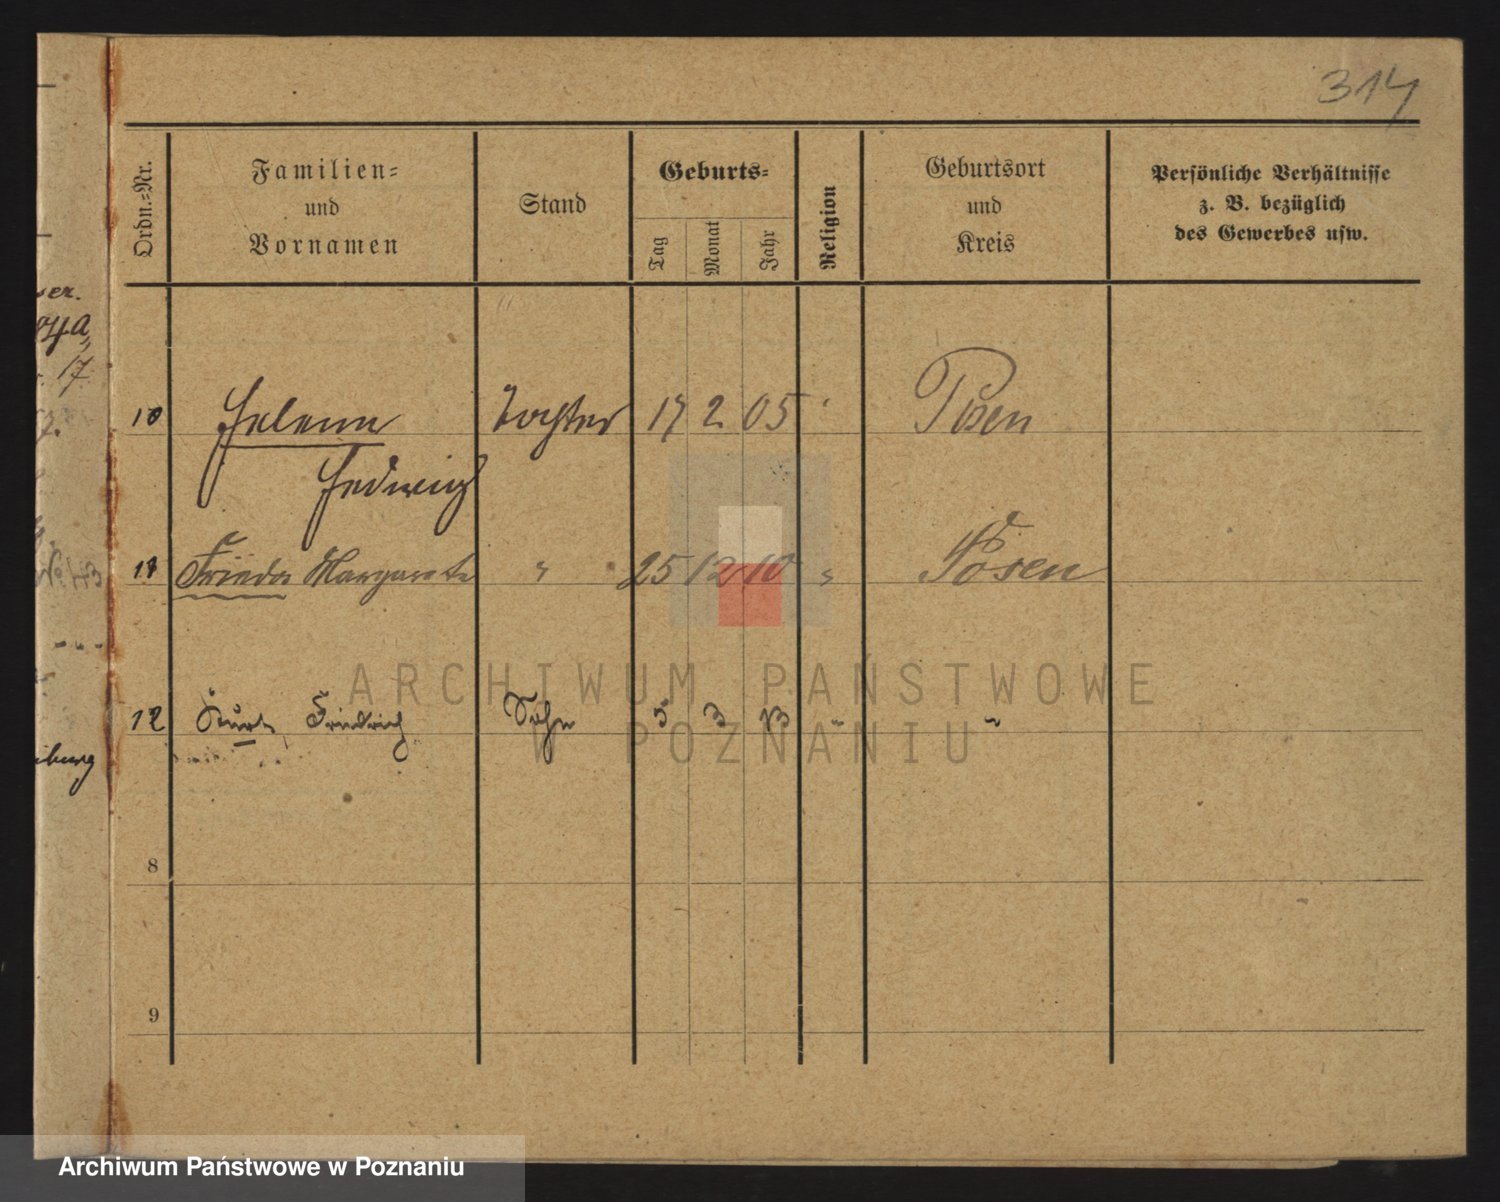 314
Ordn.=Nr.
Familien=
und
Vornamen
Stand
Geburts=
Tag
Monat
Jahr
Religion
Geburtsort
und
Kreis
Persönliche Verhältnisse
z. B. bezüglich
des Gewerbes usw.
10 Helene Tochter 17 2 05 " Posen
Hedwig
11 Frieda Margarete " 25 12 10 " Posen
12 Kurt, Friedrich Sohn 5 3 13 " "
8
9
17
ARCHIWUM PAŃSTWOWE
W POZNANIU
Archiwum Państwowe w Poznaniu